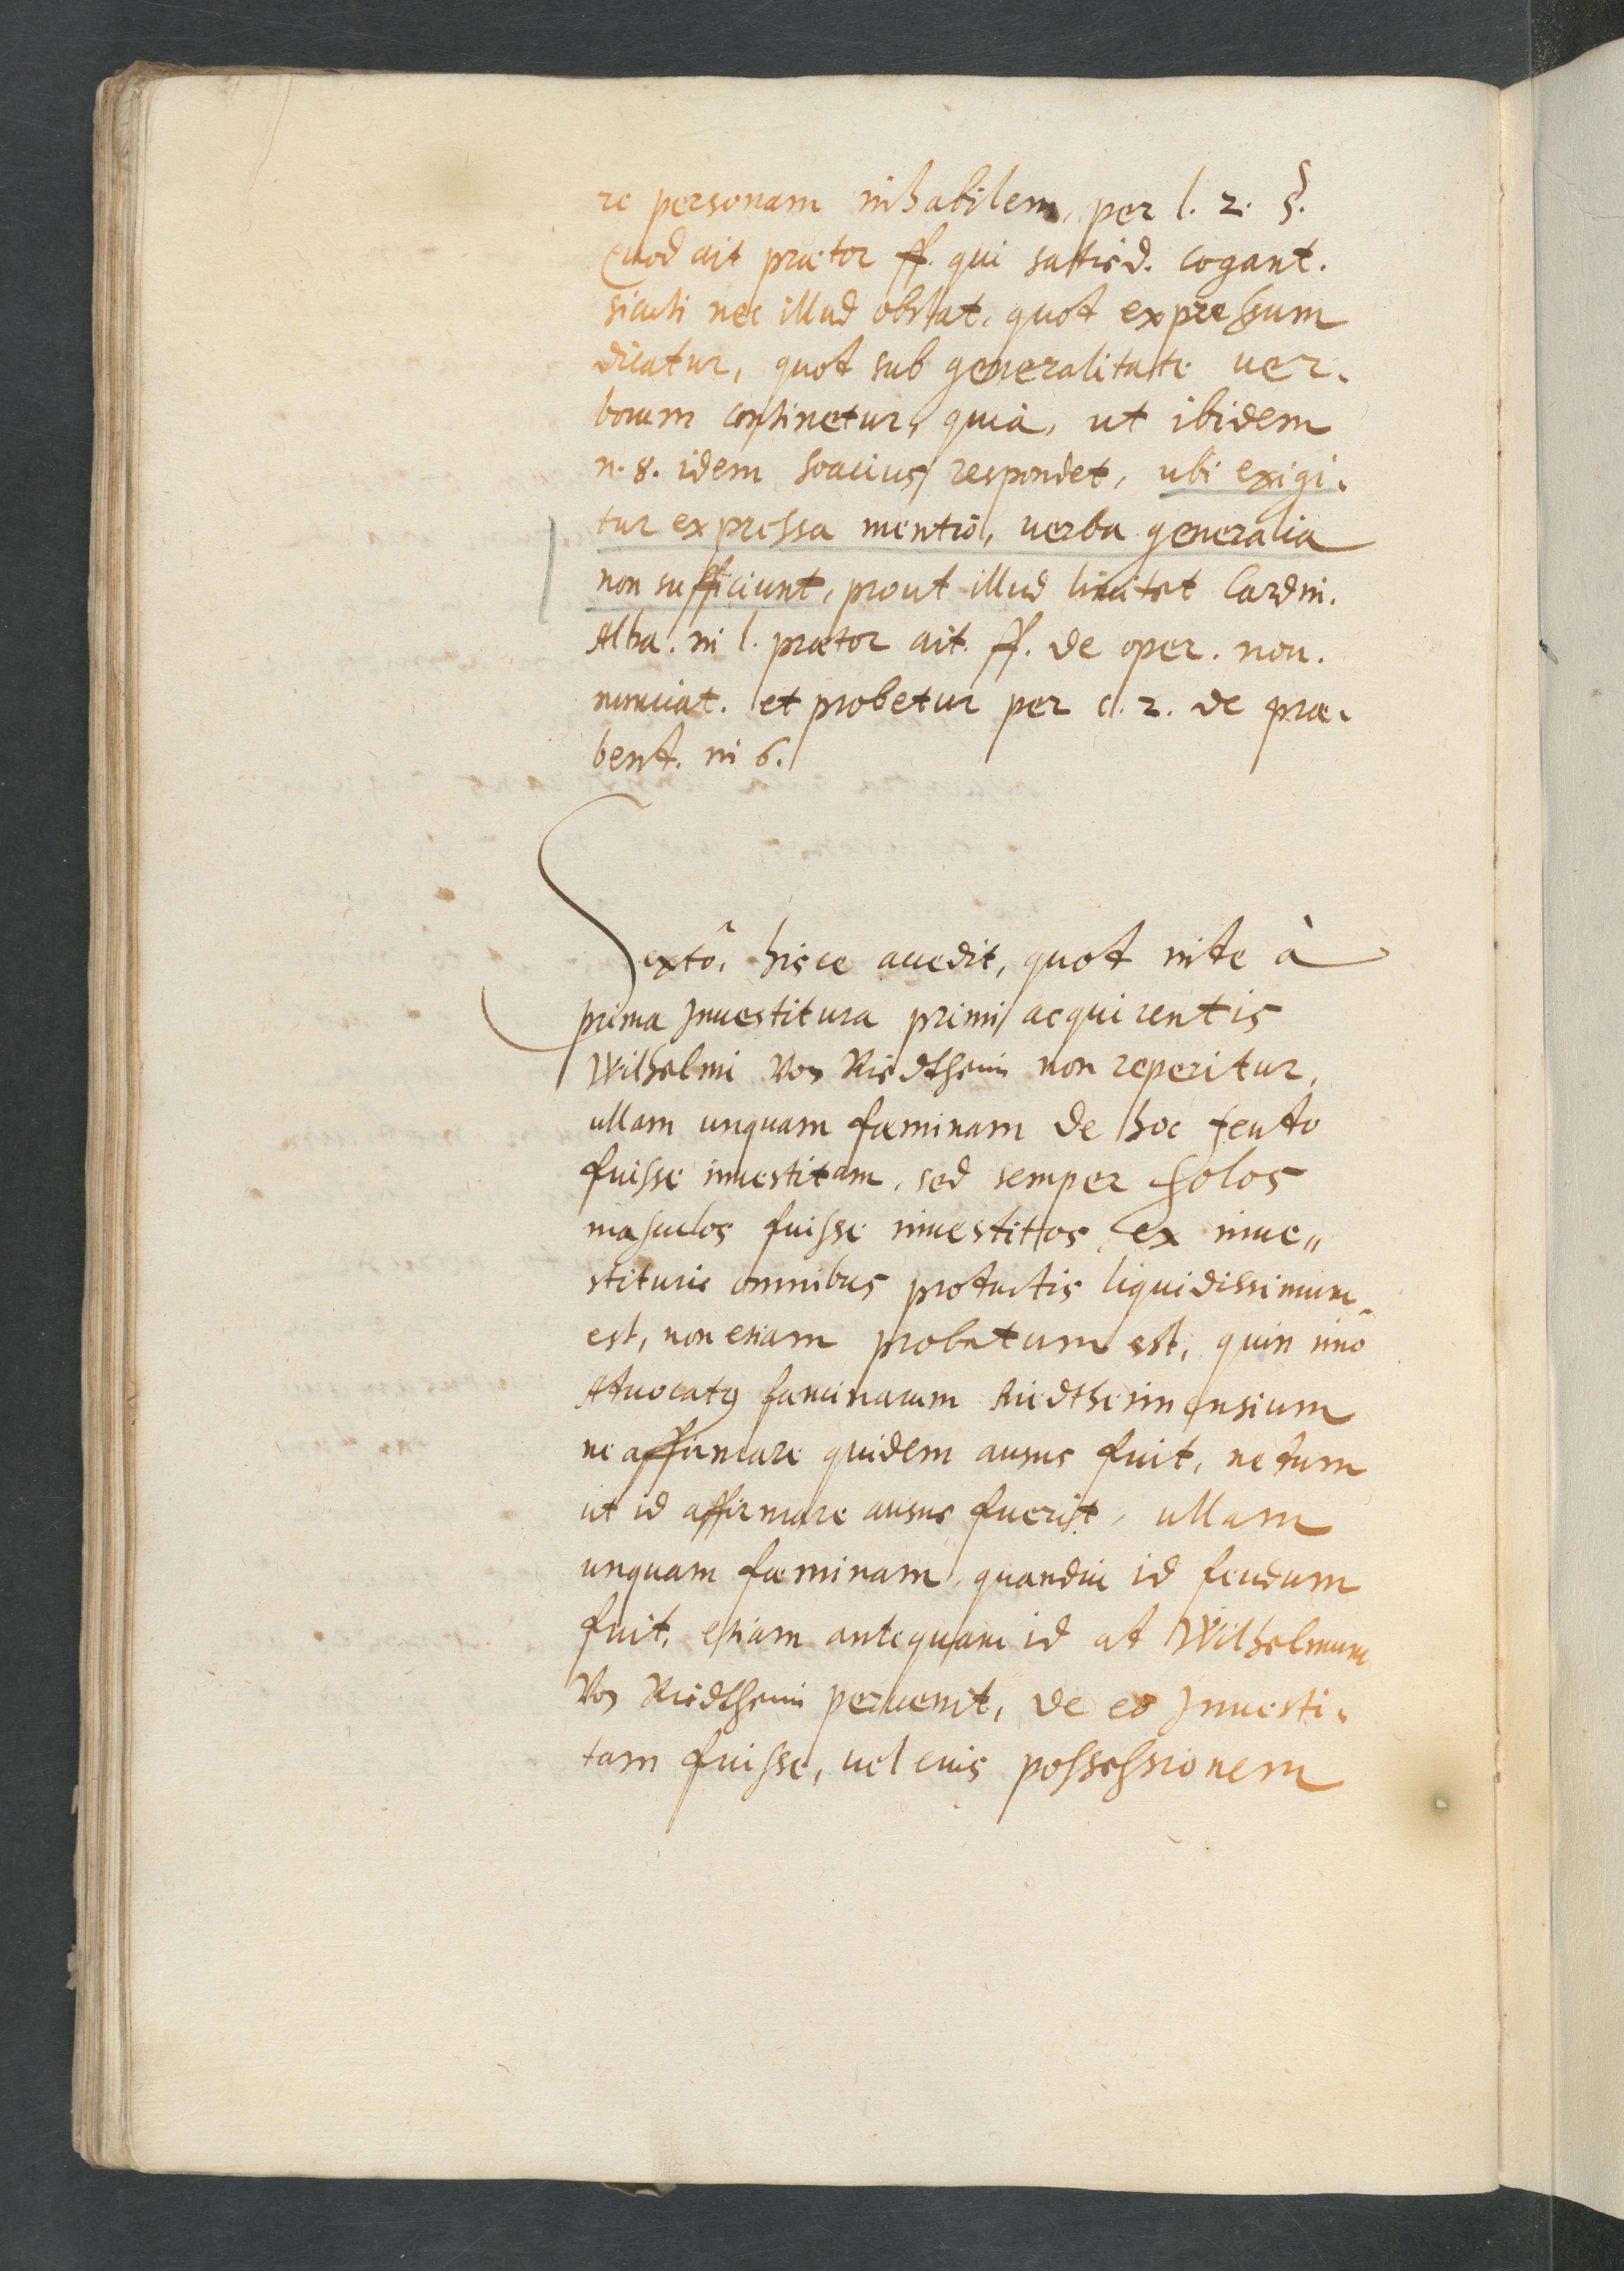 re personam inhabilem, per l. 2. §.
Quod ait praetor ff. qui satisd. cogant.
sicuti nec illud obstat, quod expressum
dicatur, quod sub generalitate ver-
borum continetur, quia, ut ibidem
n. 8. idem Soacius respondet, ubi exigi-
tur expressa mentio, verba generalia
non sufficiunt, prout illud limitet Cardin.
Alba. in l. praetor ait. ff. de oper. nou.
nunciat. et probetur per c. 2. de prae-
bend. in 6.
Sexto, hisce accedit, quod inde à
prima Inuestitura primi acquirentis
Wilhelmi Von Riedtheim non reperitur,
ullam unquam faeminam de hoc feudo
fuisse inuestitam, sed semper solos
masculos fuisse inuestitos, ex inue„
stituris omnibus productis liquidissimum
est, non etiam probatum est, quin imo
Aduocatus faeminarum Riedtheimensium
ne affirmare quidem ausus fuit, nedum
ut id affirmare ausus fuerit, ullam
unquam faeminam, quandiu id feudum
fuit, etiam antequam id ad Wilhelmum
Von Riedtheim peruenit, de eo Inuesti-
tam fuisse, vel eius possessionem